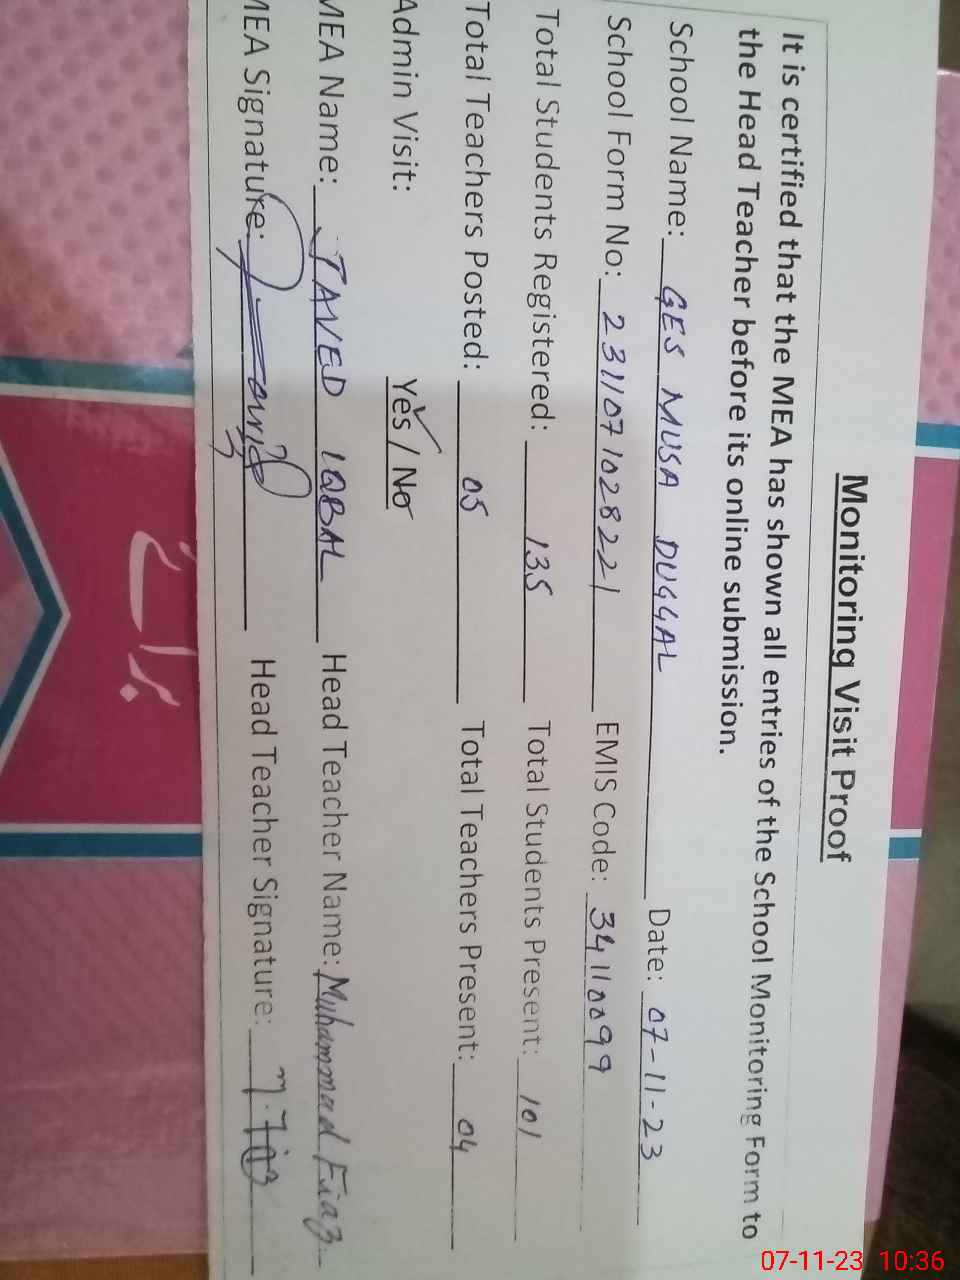 Monitoring Visit Proof
It is certified that the MEA has shown all entries of the School Monitoring Form to
the Head Teacher before its online submission.
School Name: GES MUSA DUGGAL Date: 07-11-23
School Form No: 2311071028221 EMIS Code: 34110099
Total Students Registered: 135 Total Students Present: 101
Total Teachers Posted: 05 Total Teachers Present: 04
Admin Visit: Yes / No
MEA Name: JAVED IQBAL Head Teacher Name: Muhammad Fiaz
MEA Signature: Head Teacher Signature:
07-11-23 10:36